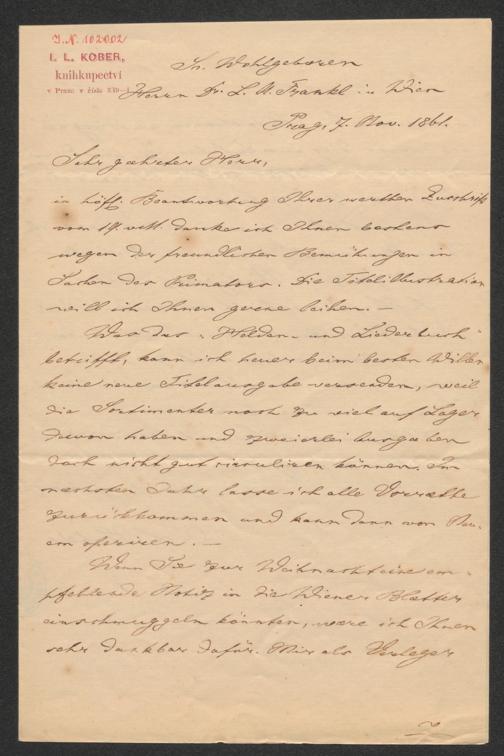 I.N. 102002
I. L. KOBER,
knihkupectví
v Praze v čísle
Sr. Wohlgeboren
Herrn Dr. L. A. Frankl in Wien
Prag, 7. Nov. 1861.
Sehr geehrter Herr,
in höfl. Beantwortung Ihrer werthen Zuschrift
vom 19. v. Mt. danke ich Ihnen bestens
wegen der freundlichen Bemühungen in
Sachen des Primators. Die Titelillustration
will ich Ihnen gerne leihen. —
Was das "Helden- und Liederbuch"
betrifft, kann ich heuer beim besten Willen
keine neue Titelausgabe versenden, weil
die Sortimenter noch zu viel auf Lager
davon haben und zweierlei Ausgaben
doch nicht gut circuliren können. Im
nächsten Jahr lasse ich alle Vorräthe
zurückkommen und kann dann von Neu-
em operiren. —
Wenn Sie zur Weihnacht eine em-
pfehlende Notiz in die Wiener Blätter
einschmuggeln könnten, wäre ich Ihnen
sehr dankbar dafür. Mir als Verleger